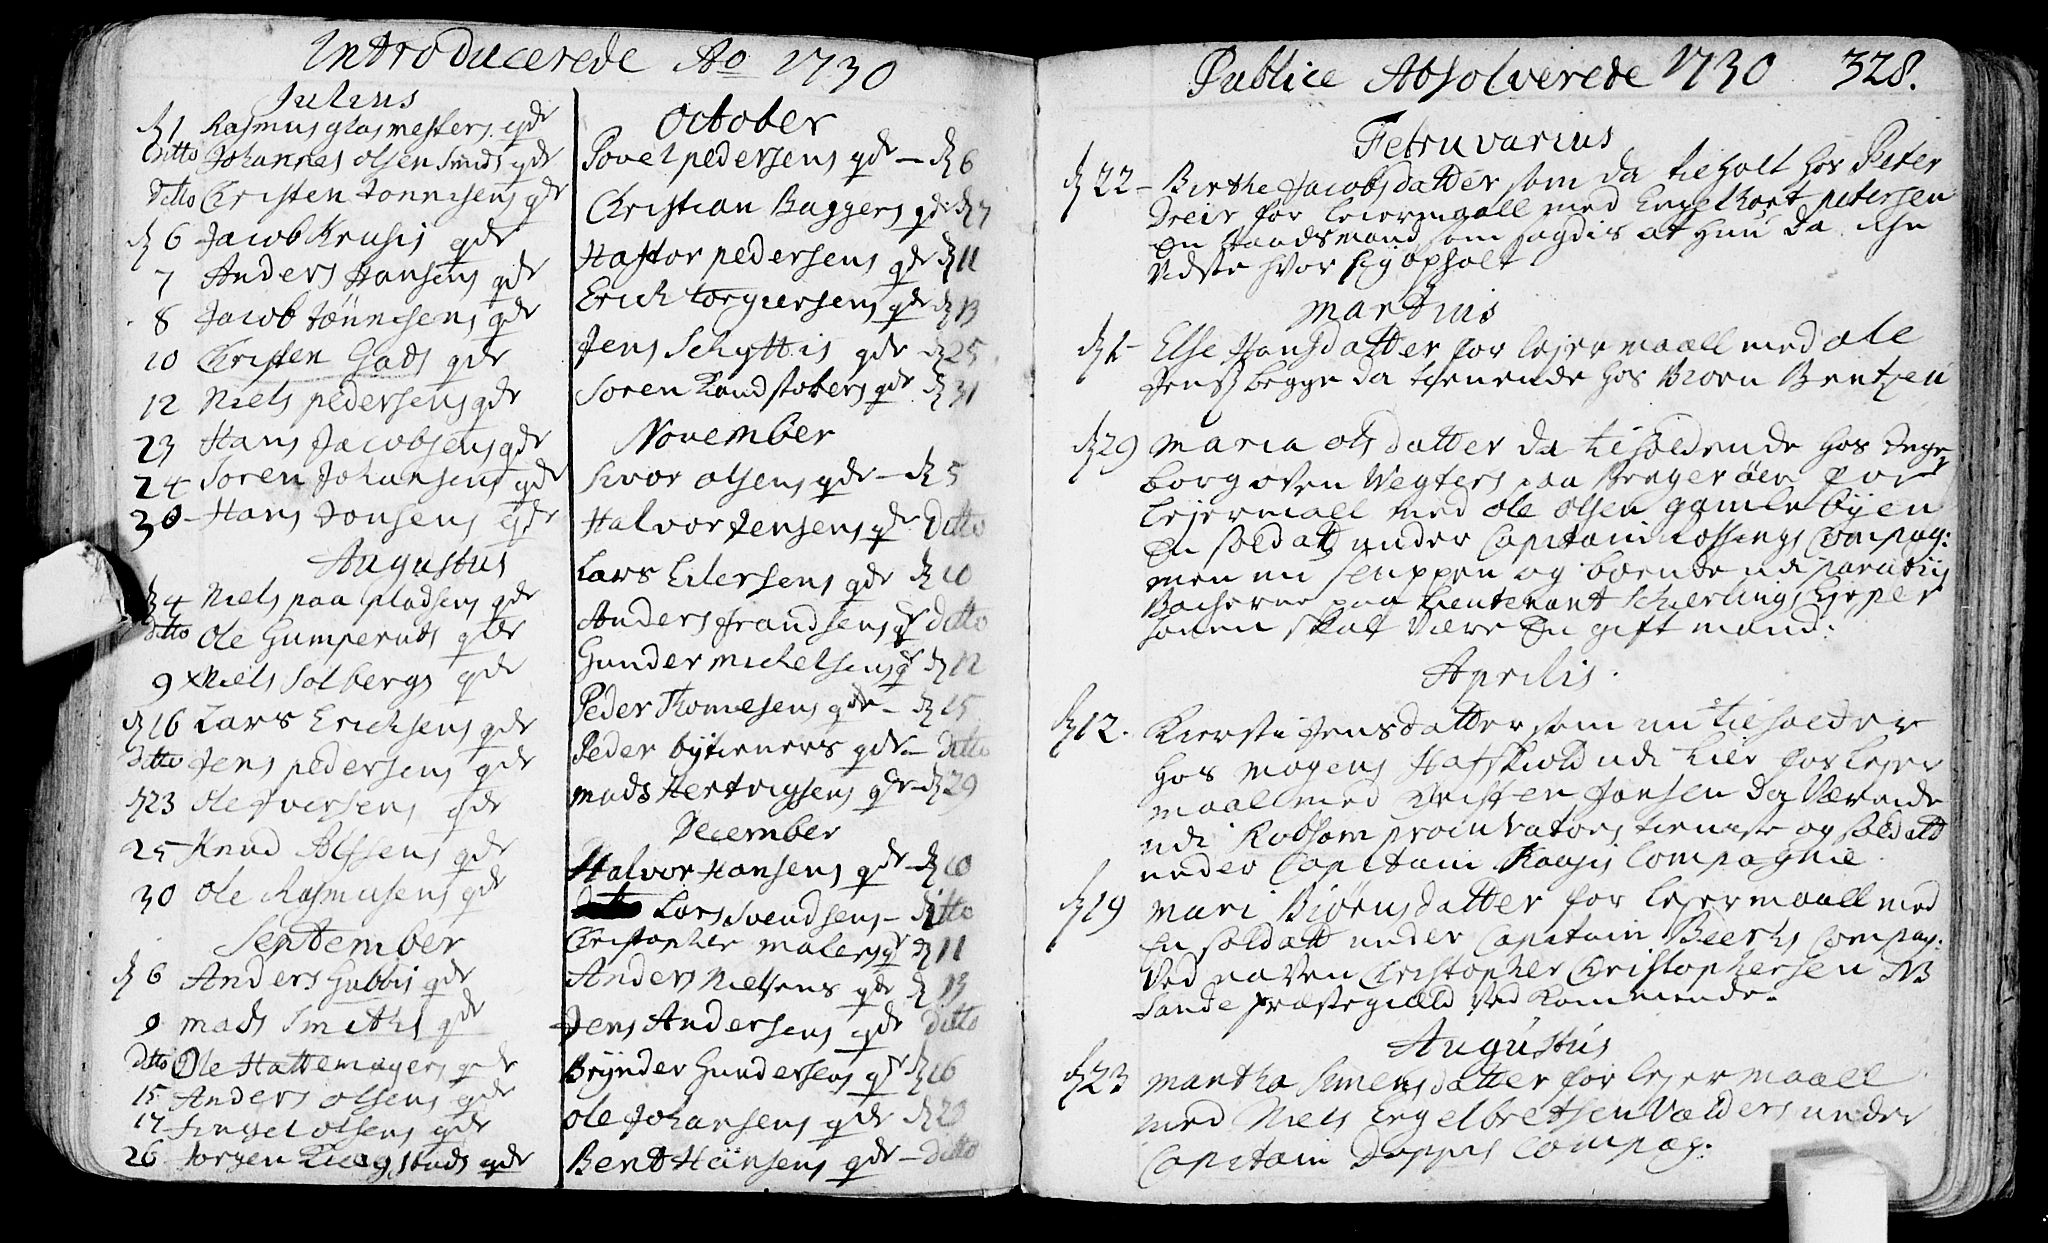 Introducerede Ao 1730
Julius
d 1 Rasmus glasmesters qde
Ditto Johannes Olsen Smids qde
Ditto Christen Tonnesens qde
d 6 Jacob Krusis qde
7 Anders Hansens qde
8 Jacob Tönnesens qde
10 Christen Gads qde
12 Niels pedersens qde
23 Hans Jacobsens qde
24 Soren Johansens qde
30 Hans Jonsens qde
Augustus
d 4 Niels paa pladsens qde
Ditto Ole Gumperuds qde
9 Niels Solbergs qde
d 16 Lars Erichsens qde
Ditto Jens pedersens qde
d 23 Ole Iversens qde
25 Knud Olssens qde
30 Ole Rasmusens qde
September
d 6 Anders Gubbis qde
9 mads Smeths qde
Ditto Ole Hattemagers qde
15 Anders Olsens qde
17 Olsens qde
26 Jorgen qde
October
Povel pedersens qde – d 6
Christian Baggers qde d 7
Haftor pedersens qde d 11
Erich torgiersens qde d 13
Jens Schyttis qde d 25
Soren Kandstobers qde d 31
November
Sivor olsens qde – d 5
Halvor Jensens qde Ditto
Lars Eilersens qde d 10
Anders Frandsens qde ditto
Gunder Michelsens qde d 12
Peder Thomesens qde – d 15
Peder bytieners qde – ditto
mads Hertvigsens qde – d 29
December
Halvor Hansens qde – d 10
Lars Svendsens – ditto
Christopher malers qde d 11
Anders Nielsens qde d 13
Jens Andersens qde ditto
Brynder Gundersens qde d 16
Ole Johansens qde d 20
Bent Hansens qde – ditto
Publice Absolverede 1730 328.
Februvarius
d 22 – Birthe Jacobsdatter som da tilholt hos Peter
Dreier for leiermaall med Engelbret petersen
En Baadsmand som sagdis at hun da iche
vidste hvor sig opholt
Martius
d 1 – Else Hansdatter for leiermaall med ole
Jenss begge da thienende hos Biørn Bentzen
d 29 Maria olsdatter da tilholdende hos Inge,
borg oven Vegters paa Bragerøen for
leiermaall med Ole Olsen gamle byen
En soldatt under Capitain Rossings Compag:
men nu sluppen og boende
paa Lieutenant Schierlings
sonen skal være En gift mand:
Aprilis.
d 12. Kiersti Jensdatter som nu tilholder
hos mogens Hafskiold udi Lier for leier
maall med Christen Jonsen da værende
udi procurators tieneste og soldatt
under Capitain Compagnie.
d 19 Mari Biørnsdatter for leiermaall med
En soldatt under Capitain Beerks Compag:
ved naven Christopher Christophersen NB
Sande præstegiæld ved kommende.
Augustus
d 23 Martha Simensdatter for leiermaall
med Niels Engelbretsen under
Capitain Compag: